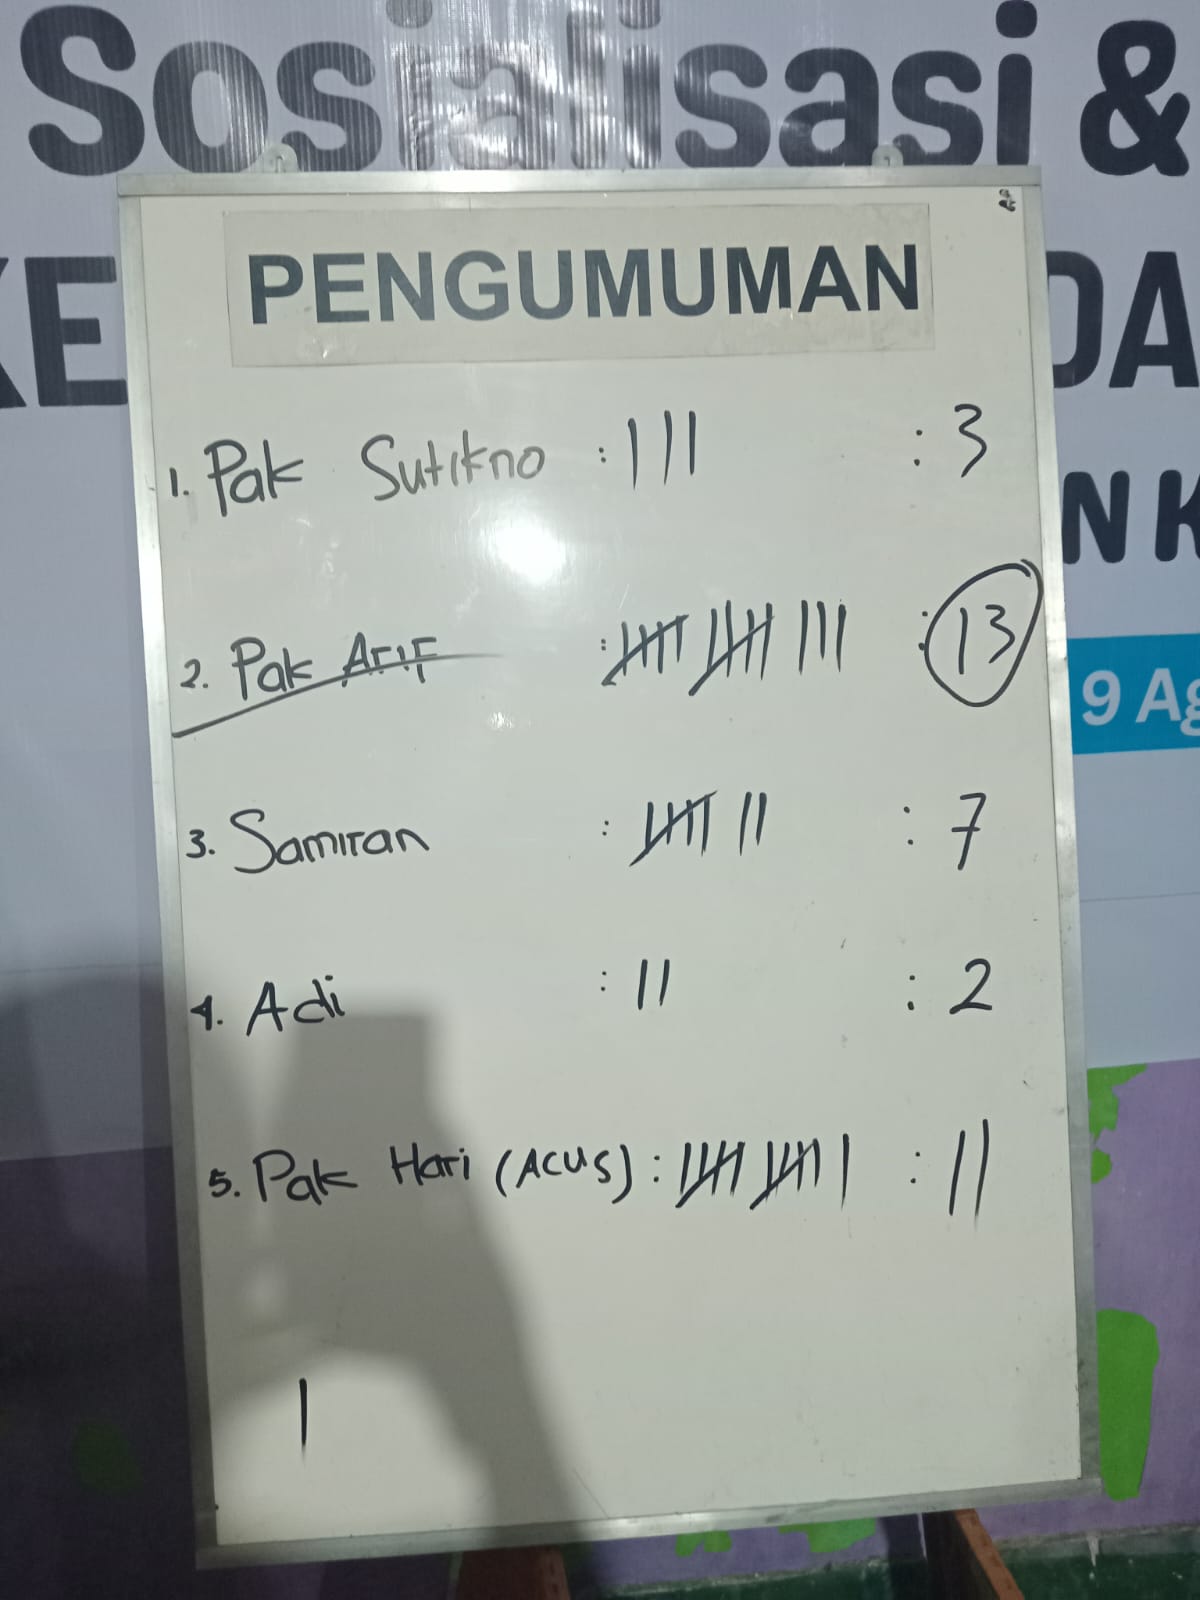 Sosialisasi &
KE DA
NK
9 Ag
PENGUMUMAN
1. Pak Sutikno : ||| : 3
2. Pak Arif : 卌 卌 ||| : 13
3. Samiran : 卌 || : 7
4. Adi : || : 2
5. Pak Hari (Acus) : 卌 卌 | : 11
|